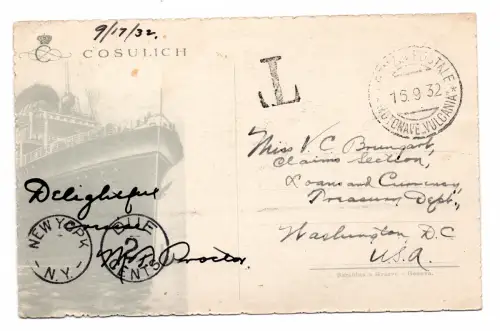 9/17/32.
COSULICH
T
POSTALE
15.9.32
MOTONAVE VULCANIA
Miss V. C. Brumgart,
Claims Section,
Loans and Currency,
Treasury Dept.,
Washington D.C
U.S.A.
Delightful
NEW YORK
N.Y.
DUE
2
CENTS
Proctor.